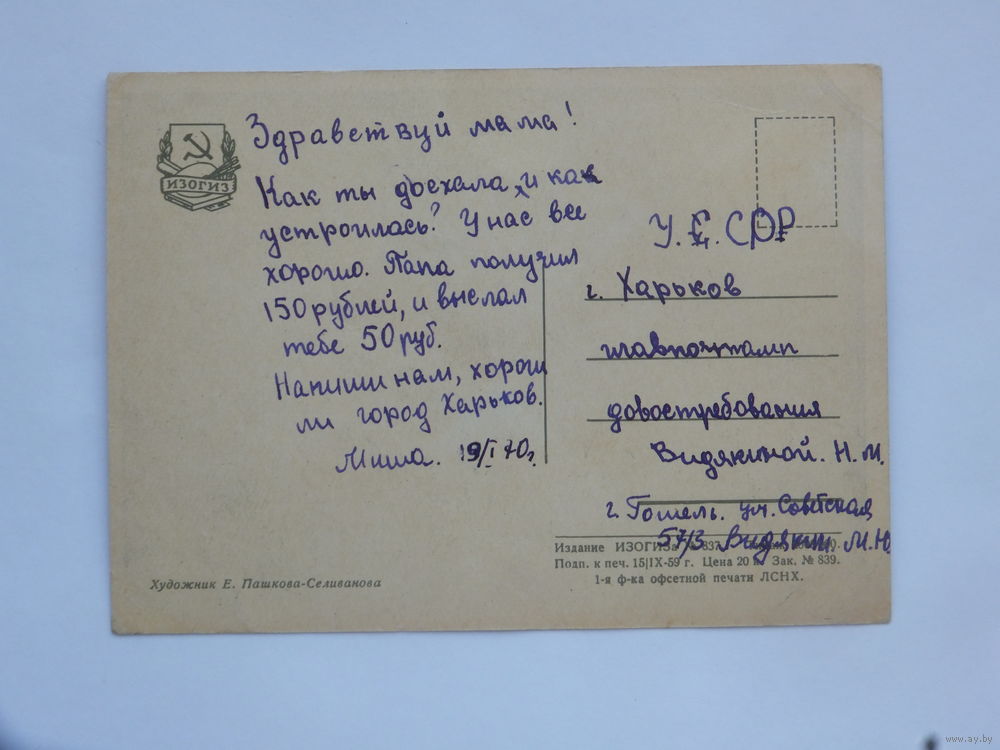 ИЗОГИЗ
Здравствуй мама!
Как ты доехала, и как
устроилась? У нас все
хорошо. Папа получил
150 рублей, и выслал
тебе 50 руб.
Напиши нам, хорош
ли город Харьков.
Миша. 19/I 70г.
У.С.СОР
г. Харьков
главпочтамп
довостребования
Видякиной. Н. М.
г. Гомель. ул. Советская
57/3 Видякин. М.Ю
Издание ИЗОГИЗа
Подп. к печ. 15|IX-59 г. Цена 20 к. Зак. № 839.
1-я ф-ка офсетной печати ЛСНХ.
Художник Е. Пашкова-Селиванова
www.ay.by